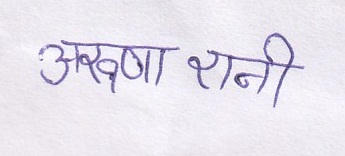 अरूणा रानी